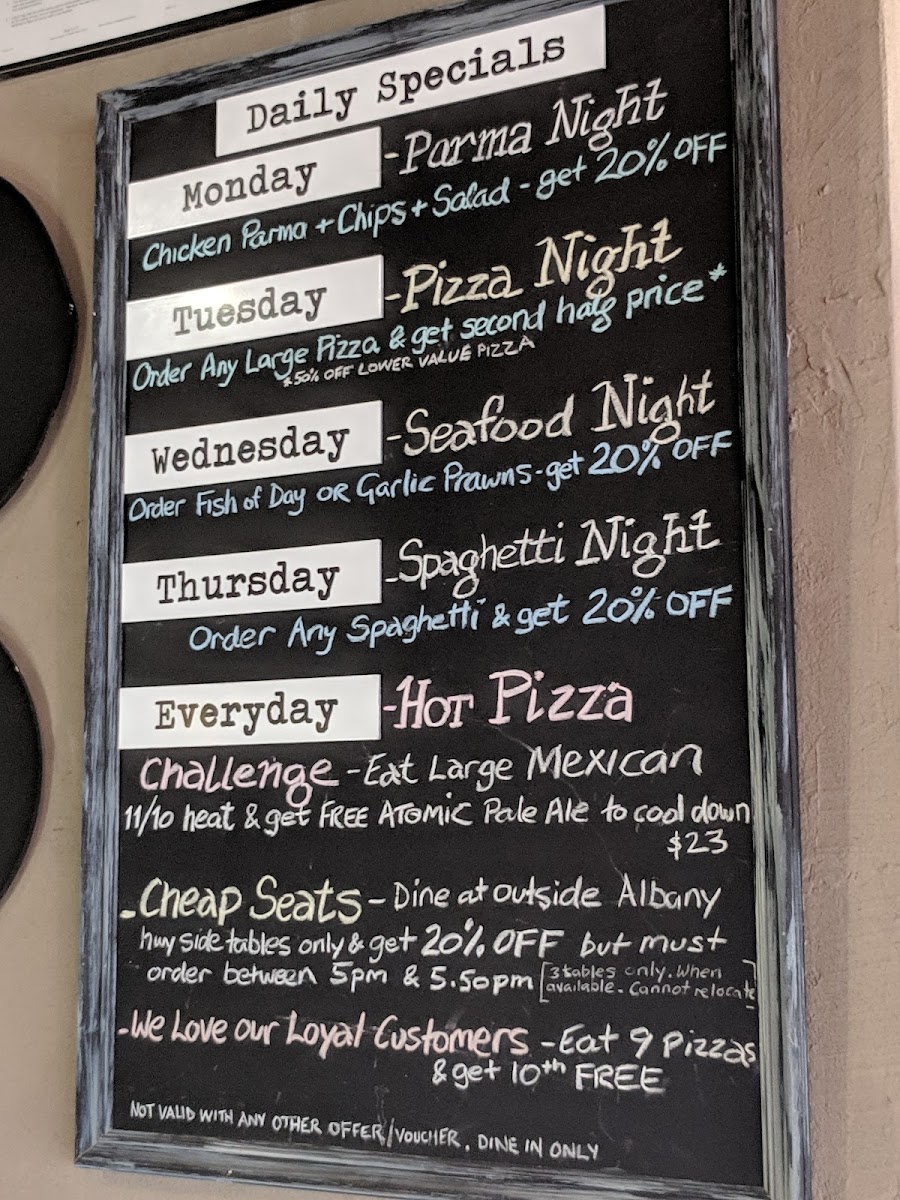 Daily Specials
Monday - Parma Night
Chicken Parma + Chips + Salad - get 20% OFF
Tuesday - Pizza Night
Order Any Large Pizza & get second half price*
*50% OFF LOWER VALUE PIZZA
Wednesday - Seafood Night
Order Fish of Day OR Garlic Prawns - get 20% OFF
Thursday - Spaghetti Night
Order Any Spaghetti & get 20% OFF
Everyday - HOT Pizza
Challenge - Eat Large Mexican
11/10 heat & get FREE ATOMIC Pale Ale to cool down
$23
- Cheap Seats - Dine at outside Albany
hwy side tables only & get 20% OFF but must
order between 5pm & 5.50pm [3 tables only. When
available. Cannot relocate]
- We Love our Loyal Customers - Eat 9 Pizzas
& get 10th FREE
NOT VALID WITH ANY OTHER OFFER/VOUCHER. DINE IN ONLY